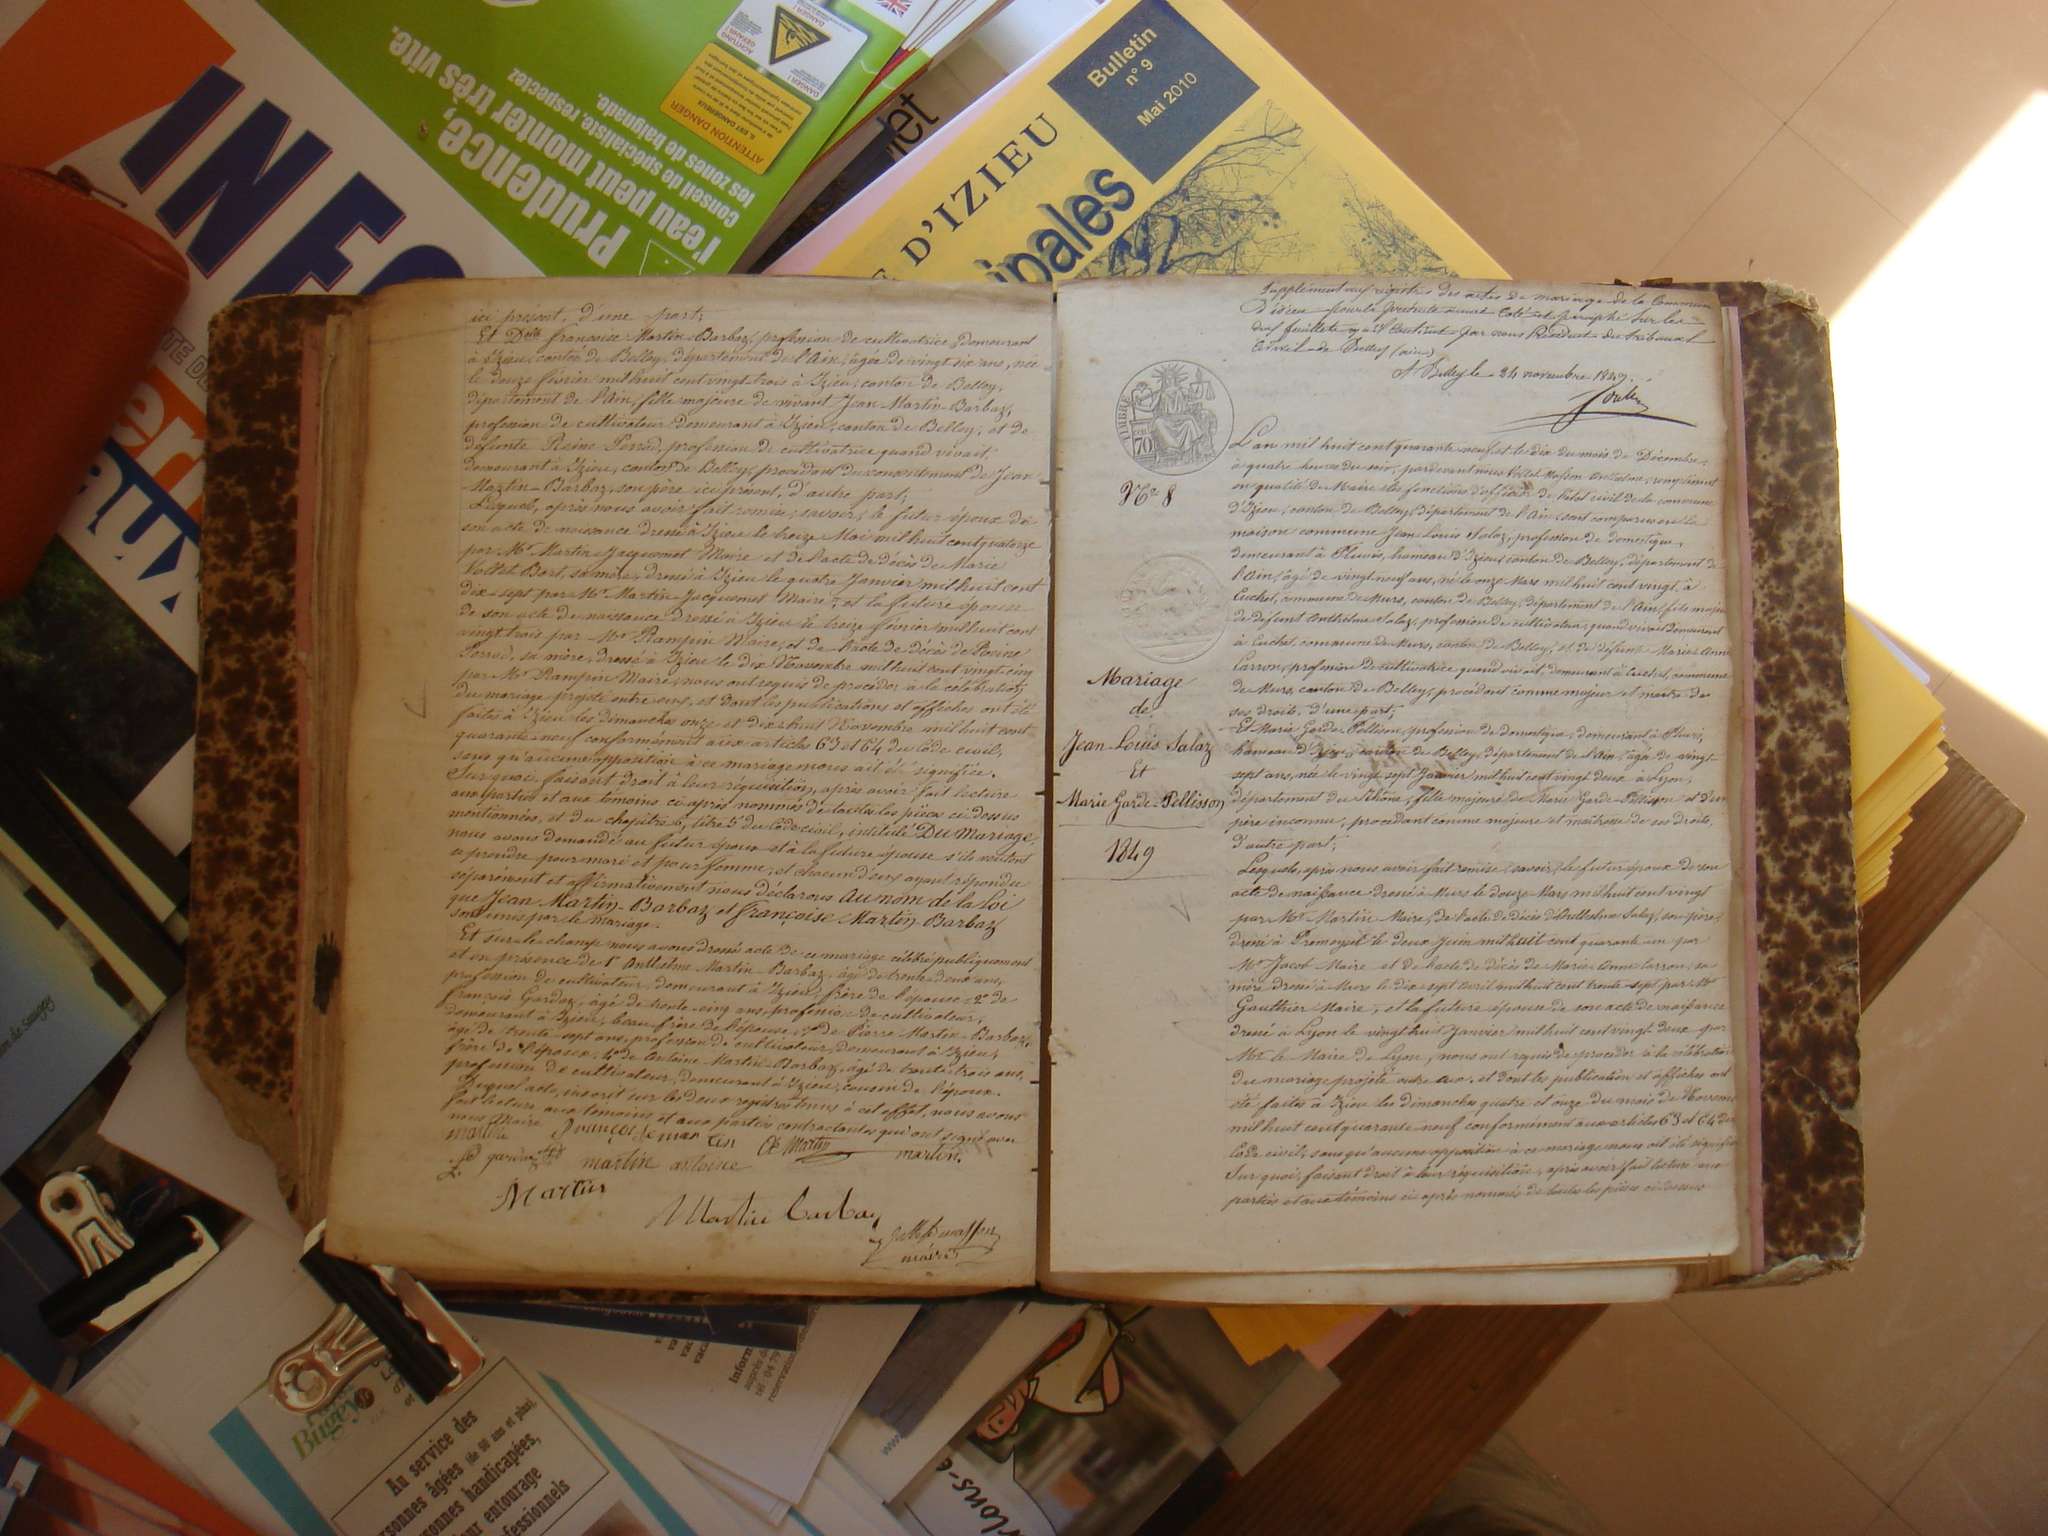 INFO
Prudence,
l'eau peut monter très vite.
Conseil de spécialiste, respectez
les zones de baignade.
ATTENTION DANGER
Bulletin
n° 9
Mai 2010
D'IZIEU
ipales
ici présent, d'une part;
Et Dlle Françoise Martin-Barbaz, profession de cultivatrice, demeurant
à Izieu, canton de Belley, département de l'Ain, âgée de vingt six ans, née
le douze février mil huit cent vingt trois à Izieu, canton de Belley,
département de l'Ain, fille majeure de vivant Jean Martin-Barbaz,
profession de cultivateur demeurant à Izieu, canton de Belley, et de
défunte Reine Perrad, profession de cultivatrice quand vivait,
demeurant à Izieu, canton de Belley, procédant du consentement de Jean
Martin-Barbaz, son père ici présent, d'autre part;
Lesquels, après nous avoir fait remise, savoir; le futur époux de
son acte de naissance dressé à Izieu le treize Mai mil huit cent quatorze
par Mr Martin-Jacquemet Maire et de l'acte de décès de Marie
Vallet Bort, sa mère, dressé à Izieu le quatre Janvier mil huit cent
dix-sept par Mr Martin-Jacquemet Maire; et la future épouse
de son acte de naissance dressé à Izieu le treize février mil huit cent
vingt trois par Mr Rampin Maire, et de l'acte de décès de Reine
Perrad, sa mère, dressé à Izieu le dix Novembre mil huit cent vingt cinq
par Mr Rampin Maire, nous ont requis de procéder à la célébration
du mariage projeté entre eux, et dont les publications et affiches ont été
faites à Izieu les dimanches onze et dix huit Novembre mil huit cent
quarante neuf conformément aux articles 63 et 64 du Code civil,
sans qu'aucune opposition à ce mariage nous ait été signifiée.
Sur quoi, faisant droit à leur réquisition, après avoir fait lecture
aux parties et aux témoins ci-après nommés de toutes les pièces ci-dessus
mentionnées, et du chapitre 6, titre 5 du Code civil, intitulé Du Mariage,
nous avons demandé au futur époux et à la future épouse s'ils veulent
se prendre pour mari et pour femme, et chacun d'eux ayant répondu
séparément et affirmativement nous déclarons Au nom de la loi
que Jean Martin-Barbaz et Françoise Martin-Barbaz
sont unis par le mariage.
Et sur-le-champ nous avons dressé acte de ce mariage célébré publiquement
et en présence de 1° Anthelme Martin-Barbaz, âgé de trente deux ans,
profession de cultivateur, demeurant à Izieu, frère de l'épouse, 2° de
François Gardaz, âgé de trente-cinq ans, profession de cultivateur,
demeurant à Izieu, beau-frère de l'épouse, 3° de Pierre Martin-Barbaz,
âgé de trente sept ans, profession de cultivateur, demeurant à Izieu,
frère de l'époux, 4° de Antoine Martin-Barbaz, âgé de trente trois ans,
profession de cultivateur, demeurant à Izieu, cousin de l'époux.
Duquel acte, inscrit sur les deux registres tenus à cet effet, nous avons
fait lecture aux témoins et aux parties contractantes qui ont signé avec
nous Maire
martin
martin antoine
Martin
martin.
Martin
Martin barbaz
maire
Supplément aux registres des actes de mariage de la Commune
d'Izieu
Civil de Belley (ain)
A Belley le 24 novembre 1849.
TIMBRE
70
N° 8
Mariage
de
Jean Louis Salaz
Et
Marie Garde-Pellisson
1849
L'an mil huit cent quarante neuf et le dix du mois de Décembre,
à quatre heures du soir, pardevant nous Vallet-Masson Anthelme, remplissant
en qualité de Maire les fonctions d'officier de l'état civil de la commune
d'Izieu, canton de Belley, département de l'Ain, sont comparus en la
maison commune Jean Louis Salaz, profession de domestique,
demeurant à Pluvis, hameau d'Izieu, canton de Belley, département de
l'Ain, âgé de vingt neuf ans, né le onze Mars mil huit cent vingt à
Cuchet, commune de Murs, canton de Belley, département de l'Ain, fils majeur
de défunt Anthelme Salaz, profession de cultivateur, quand vivait demeurant
à Cuchet commune de Murs, canton de Belley, et de défunte Marie Anne
Carron, profession de cultivatrice quand vivait, demeurant à Cuchet, commune
de Murs, canton de Belley, procédant comme majeur et maître de
ses droits, d'une part;
Et Marie Garde-Pellisson, profession de domestique, demeurant à
hameau d'Izieu, canton de Belley, département de l'Ain, âgée de vingt
sept ans, née le vingt sept Janvier mil huit cent vingt deux à Lyon,
département du Rhône, fille majeure de Marie Garde-Pellisson et d'un
père inconnu, procédant comme majeure et maîtresse de ses droits,
d'autre part;
Lesquels après nous avoir fait remise, savoir; le futur époux de son
acte de naissance dressé à Murs le douze Mars mil huit cent vingt
par Mr Martin Maire, de l'acte de décès d'Anthelme Salaz, son père,
dressé à Premeyzel le deux Juin mil huit cent quarante un par
Mr Jacob Maire et de l'acte de décès de Marie-Anne Carron, sa
mère dressé à Murs le dix sept Avril mil huit cent trente sept par Mr
Gauthier Maire, et la future épouse de son acte de naissance
dressé à Lyon le vingt huit Janvier mil huit cent vingt deux par
Mr le Maire de Lyon, nous ont requis de procéder à la célébration
du mariage projeté entre eux, et dont les publication et affiches ont
été faites à Izieu les dimanches quatre et onze du mois de Novembre
mil huit cent quarante neuf conformément aux articles 63 et 64 du
Code civil, sans qu'aucune opposition à ce mariage nous ait été signifiée
Sur quoi, faisant droit à leur réquisition, après avoir fait lecture aux
parties et aux témoins ci après nommés de toutes les pièces ci-dessus
Bugey
Au service des
personnes âgées (de 60 ans et plus)